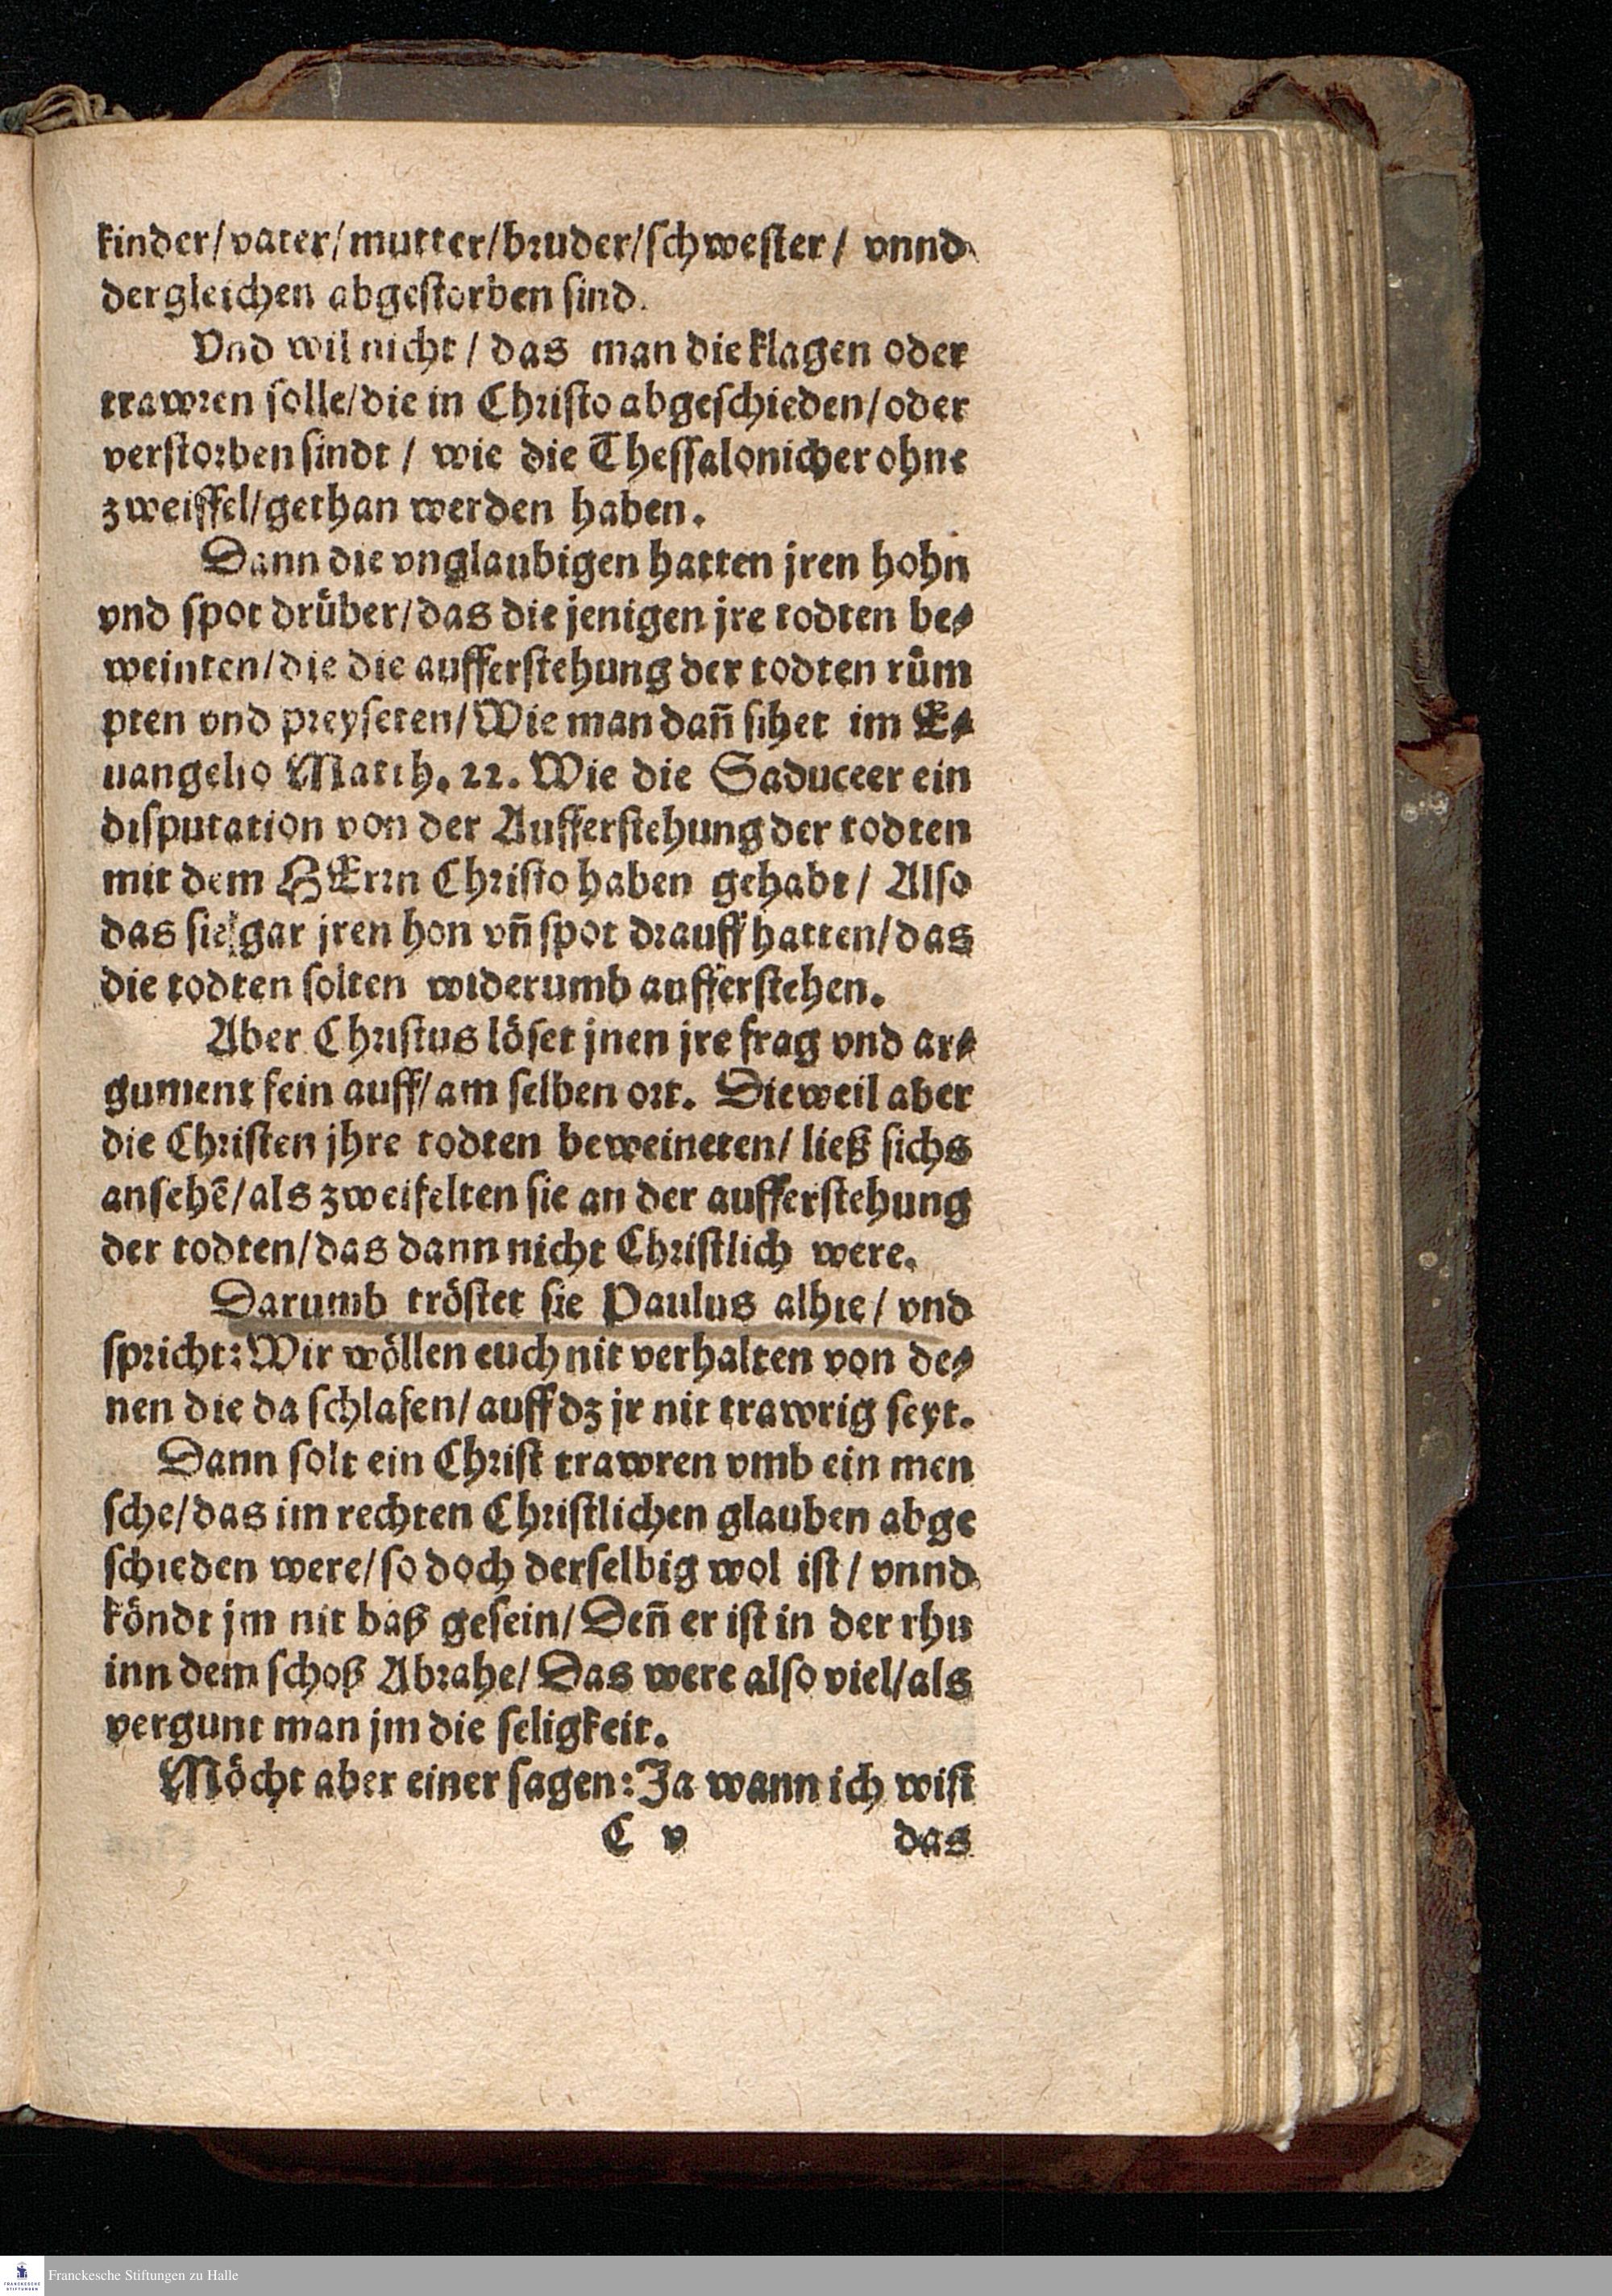 kinder/vater/mutter/bruder/schwester/ vnnd
dergleichen abgestorben sind.
Vnd wil nicht / das man die klagen oder
trawren solle/die in Christo abgeschieden/oder
verstorben sindt / wie die Thessalonicher ohne
zweiffel/gethan werden haben.
Dann die vnglaubigen hatten jren hohn
vnd spot drüber/das die jenigen jre todten be⸗
weinten/die die aufferstehung der todten rüm
pten vnd preyseten/Wie man dañ sihet im E⸗
uangelio Matth. 22. Wie die Saduceer ein
disputation von der Aufferstehung der todten
mit dem HErrn Christo haben gehabt/ Also
das sie gar jren hon vñ spot drauff hatten/das
die todten solten widerumb aufferstehen.
Aber Christus löset jnen jre frag vnd ar⸗
gument fein auff/am selben ort. Dieweil aber
die Christen jhre todten beweineten/ ließ sichs
ansehē/als zweifelten sie an der aufferstehung
der todten/das dann nicht Christlich were.
Darumb tröstet sie Paulus alhie/ vnd
spricht: Wir wöllen euch nit verhalten von de⸗
nen die da schlafen/ auff dz jr nit trawrig seyt.
Dann solt ein Christ trawren vmb ein men
sche/das im rechten Christlichen glauben abge
schieden were/so doch derselbig wol ist/ vnnd
köndt jm nit baß gesein/ Deñ er ist in der rhu
inn dem schoß Abrahe/ Das were also viel/als
vergunt man jm die seligkeit.
Möcht aber einer sagen: Ja wann ich wist
C v das
FRANCKESCHE STIFTUNGEN
Franckesche Stiftungen zu Halle